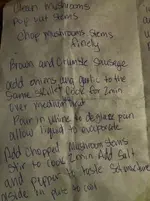 Clean mushrooms
Pop out stems
Chop mushrooms stems
finely
Brown and crumble sausage
add onions and garlic to the
same skillet cook for 2min
over medium heat
Pour in wine to deglaze pan
allow liquid to evaporate
Add chopped mushroom stems
stir to cook 2min Add salt
and pepper to taste
aside in